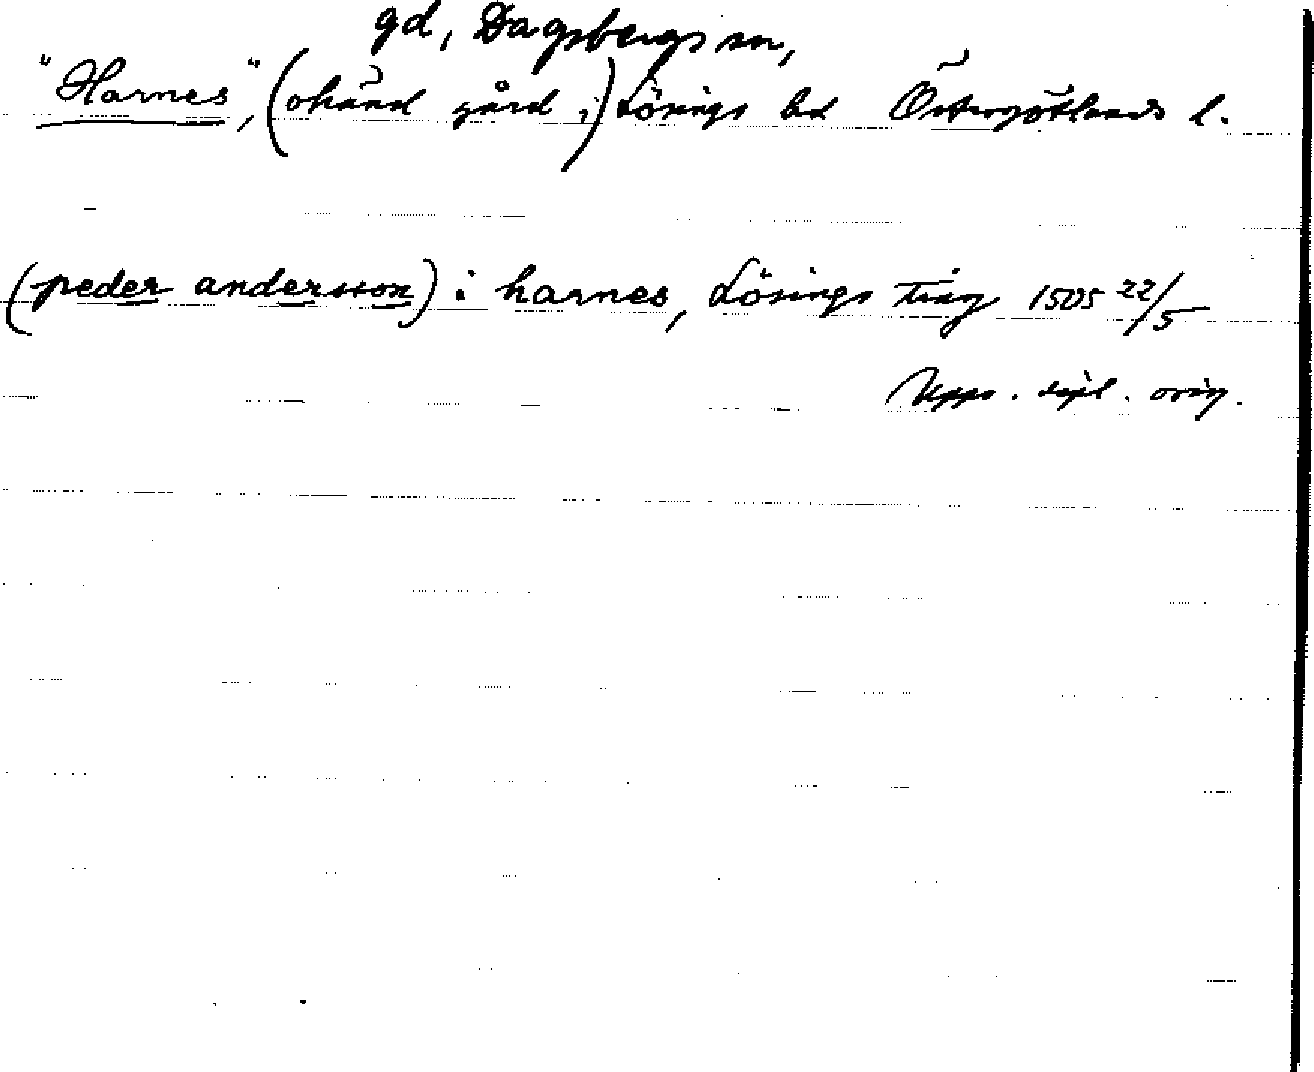 gd, Dagsbergs sn,
"Harnes", (okänd gård i) Lösings hd Östergötlands l.
(peder andersson) i harnes, Lösings ting 1505 22/5
Upps. dipl. orig.